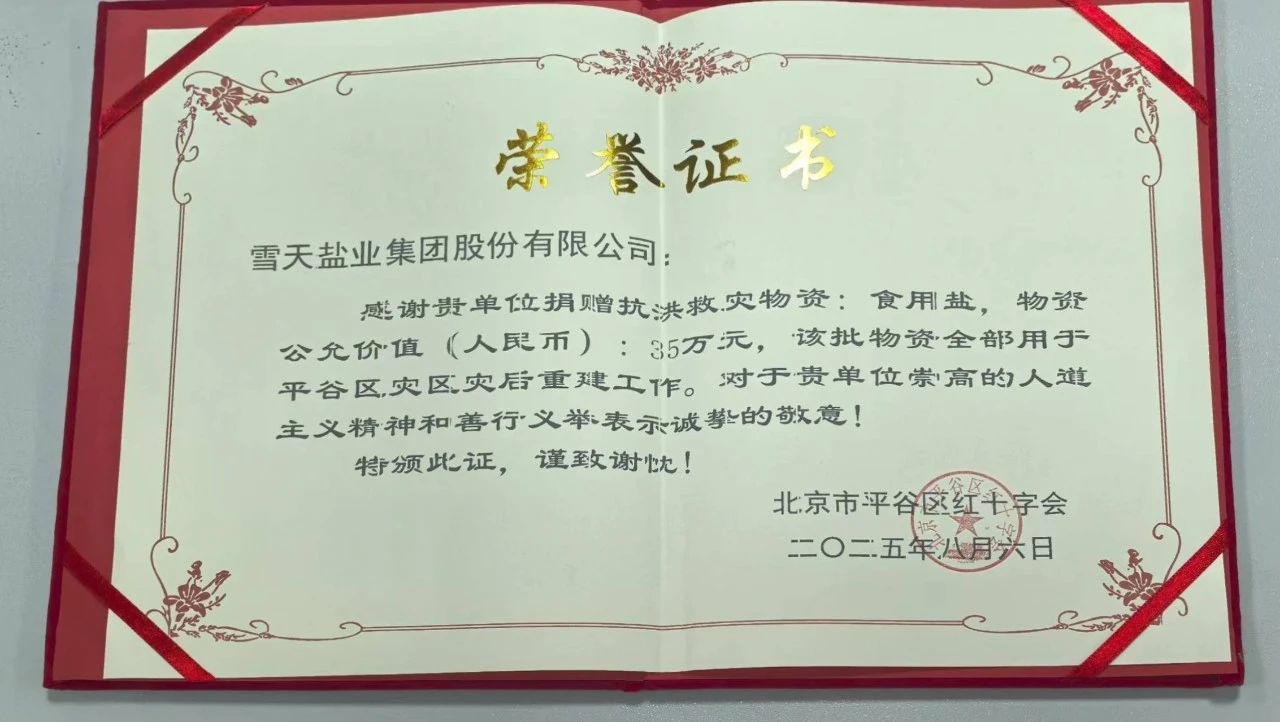 荣誉证书
雪天盐业集团股份有限公司：
感谢贵单位捐赠抗洪救灾物资：食用盐，物资
公允价值（人民币）：35万元，该批物资全部用于
平谷区灾区灾后重建工作。对于贵单位崇高的人道
主义精神和善行义举表示诚挚的敬意！
特颁此证，谨致谢忱！
北京市平谷区红十字会
二〇二五年八月六日
北京市平谷区红十字会